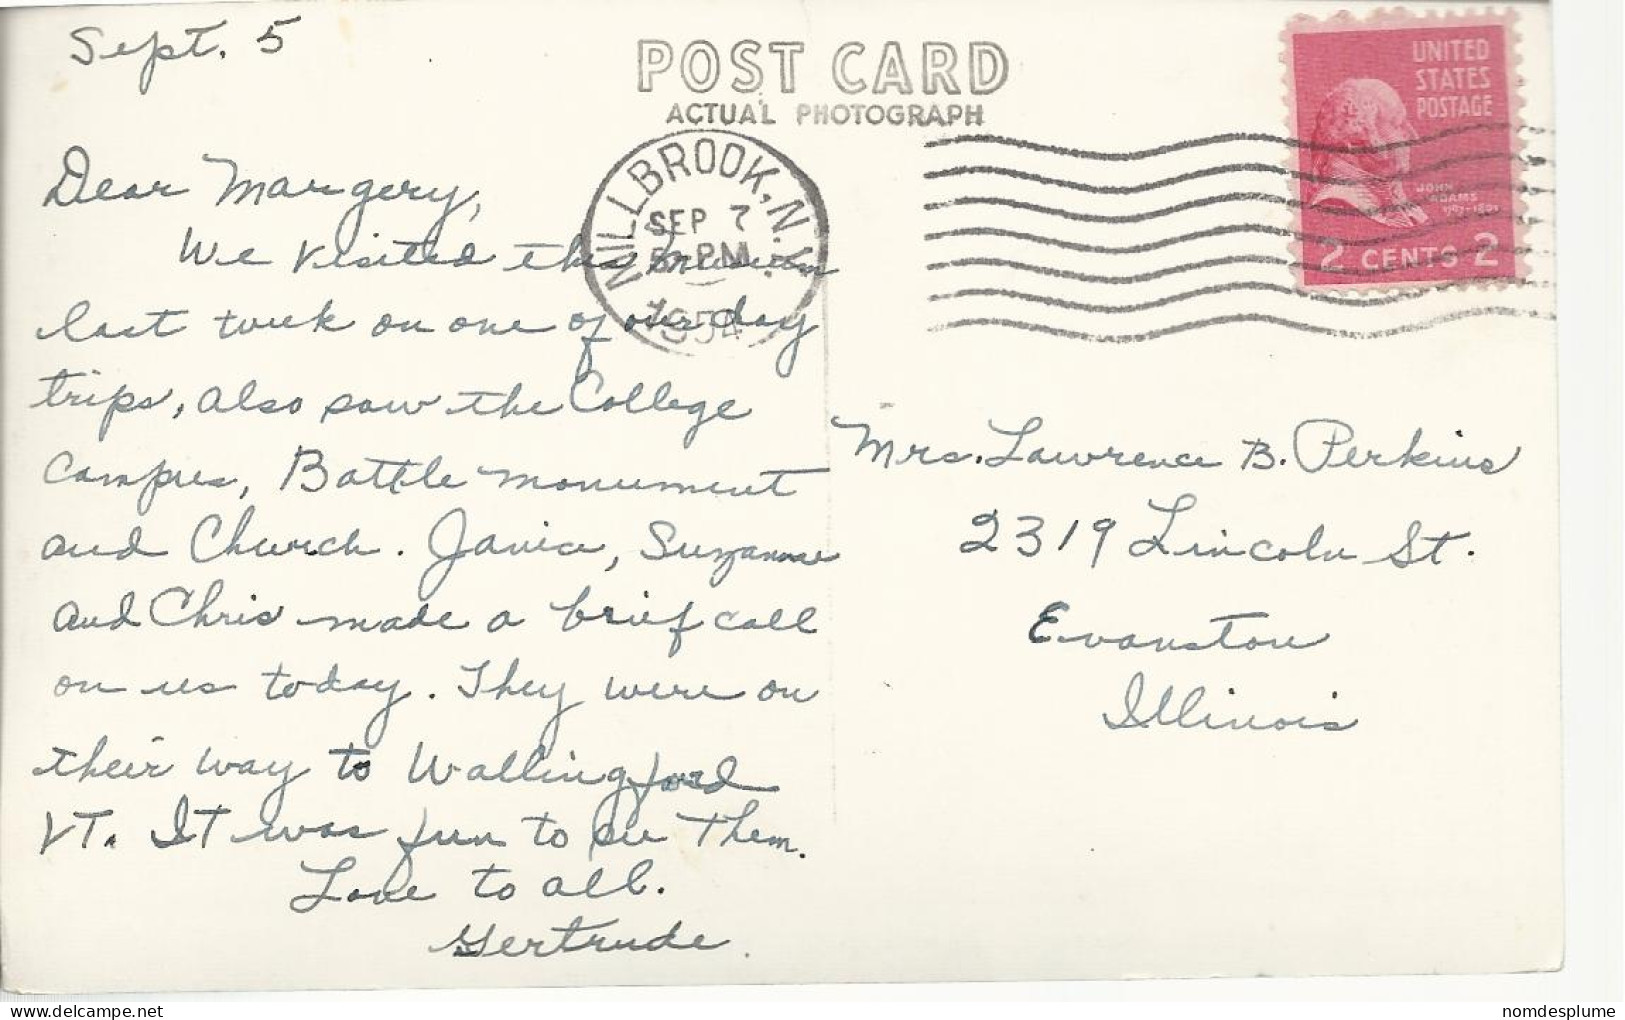 Sept. 5
POST CARD
ACTUAL PHOTOGRAPH
UNITED
STATES
POSTAGE
JOHN
ADAMS
1797-1801
2 CENTS 2
MILLBROOK, N.Y.
SEP 7
PM
1954
Dear Margery,
We visited this museum
last week on one of our day
trips, also saw the College
Campus, Battle monument
and Church. Janice, Suzanne
and Chris made a brief call
on us today. They were on
their way to Wallingford
VT. IT was fun to see Them.
Love to all.
Gertrude.
Mrs. Lawrence B. Perkins
2319 Lincoln St.
Evanston
Illinois
delcampe.net
nomdesplume